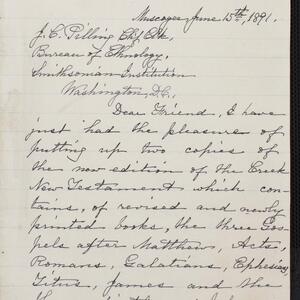 Muscogee June 15th, 1891.
J. C. Pilling Chf Clk,
Bureau of Ethnology,
Smithsonian Institution
Washington, D.C.,
Dear Friend, I have
just had the pleasure of
putting up two copies of
the new edition of the Creek
New Testament which con-
tains, of revised and newly
printed books, the three Gos-
pels after Matthews, Acts,
Romans, Galatians, Ephesians,
Titus, James and the